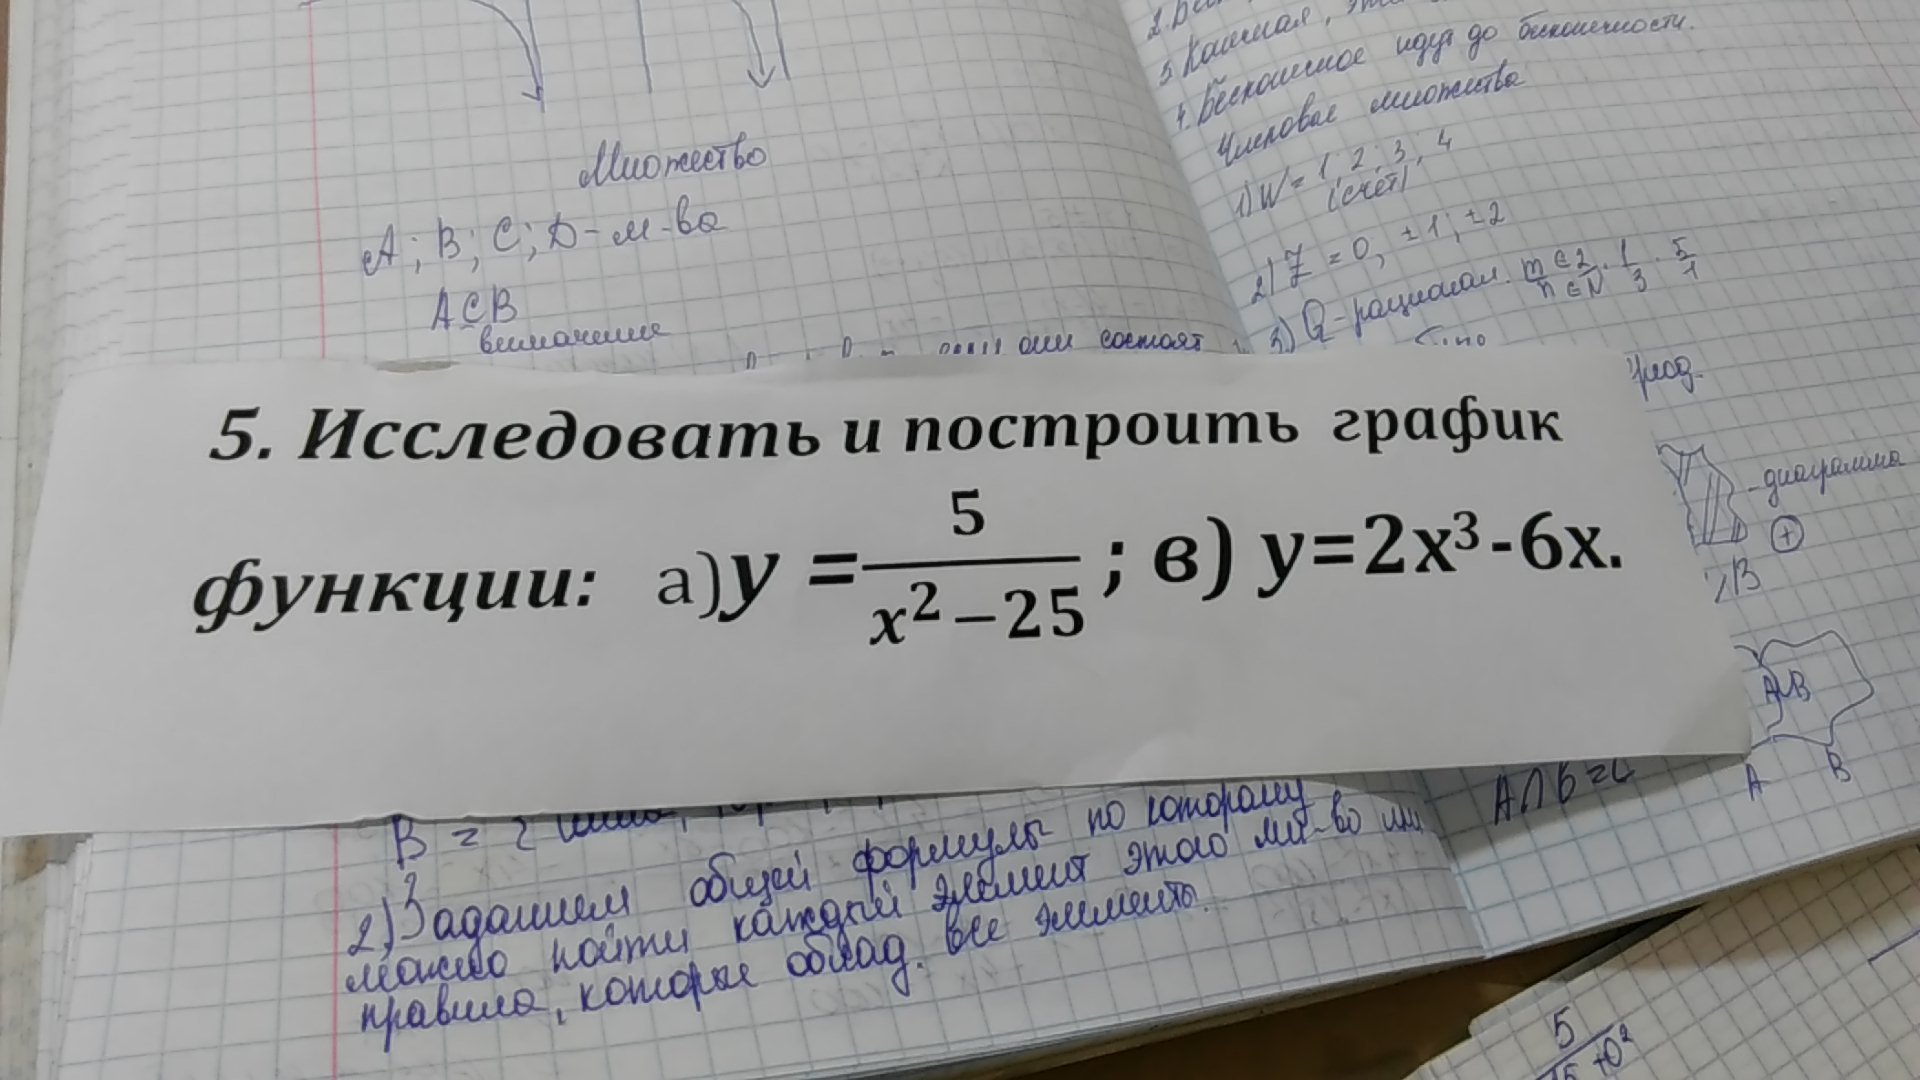 Множество
A; B; C; D - м-ва
A⊆B
они состоят
4. Бесконечное идут до бесконечности.
Числовые множества
1) N = 1, 2; 3, 4
(счёт)
2) Z = 0, ±1; ±2
3) Q - рационал. m∈Z/n∈N · 1/3 · 5/1
диаграмма
5. Исследовать и построить график
функции: а) y = 5/(x²−25) ; в) y=2x³-6x.
A∪B
A B
A∩B=C
2) Заданием общей формулы по которому
можно найти каждый элемент этого мн-во или
правила, которые облад. все элементы.